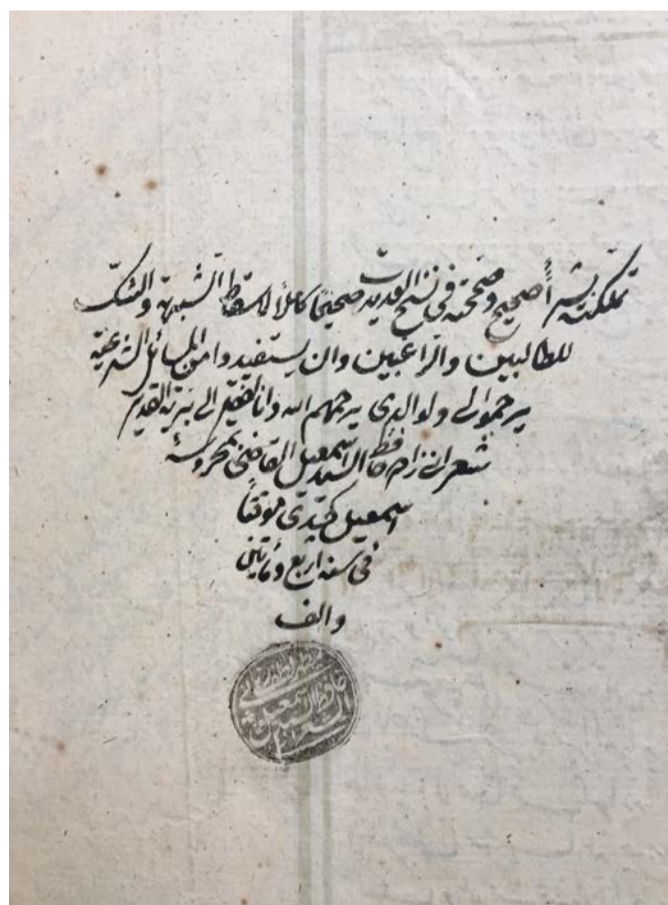 تملكته بشراء صحيح وصححته في نسخ العديدة صحيحا كاملا لاسقاط الشبهة والشك
للطالبين والراغبين وان يستفيدوا من المسائل الشرعية
يرحموا لي ولوالدي يرحمهم الله وانا الفقير الى ربه القدير
شعراني زاده حافظ السيد اسمعيل القاضي بمحروسة
اسمعيل كچيدى موقتا
في سنة اربع ومأتين
والف